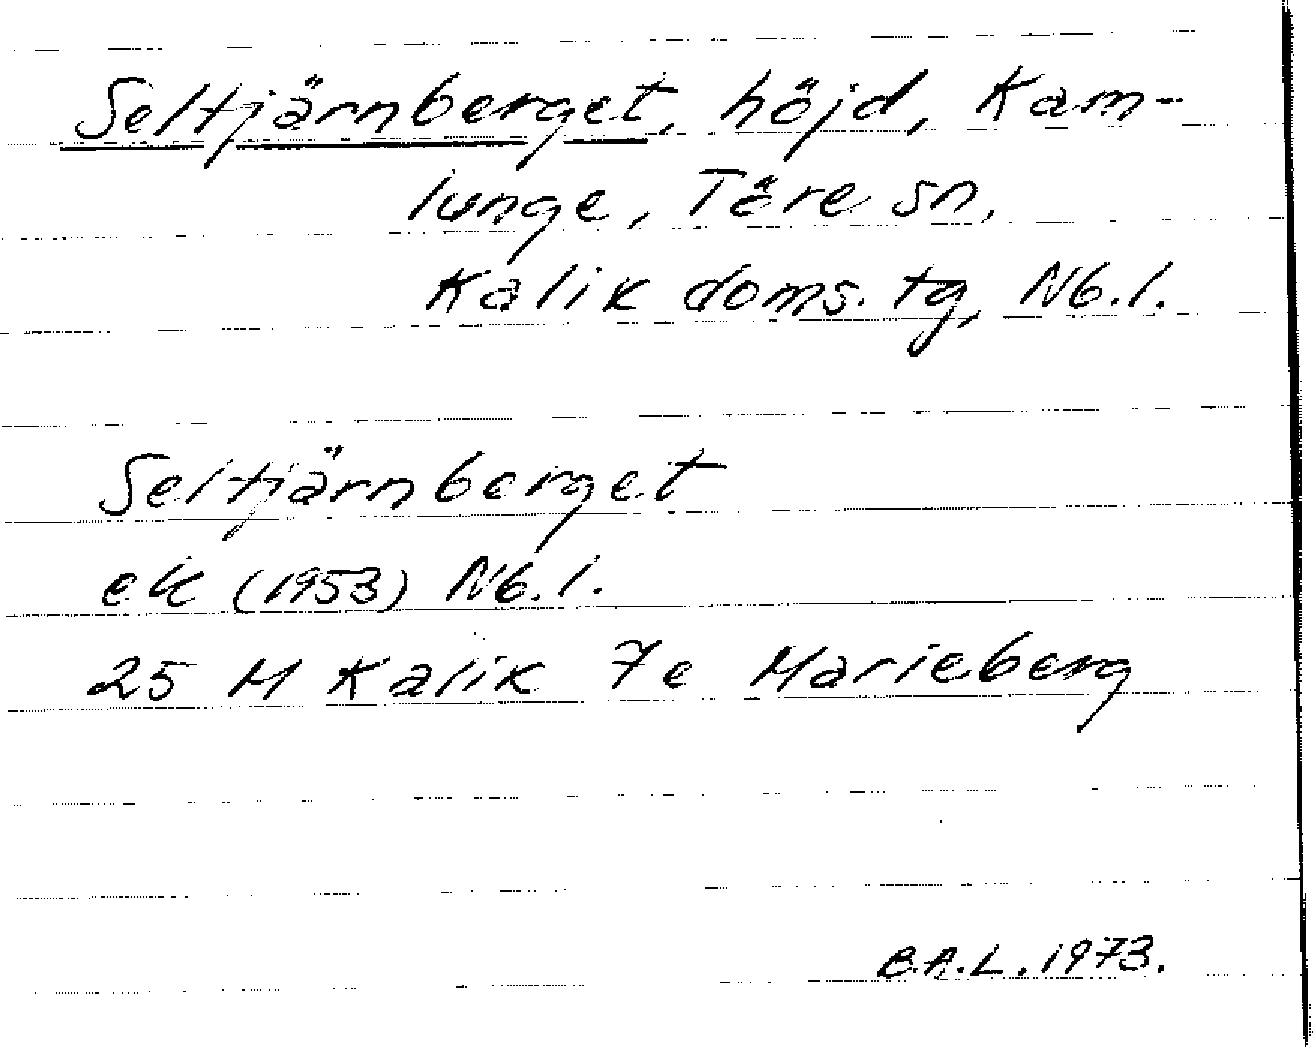 Seltjärnberget, höjd, Kam-
lunge, Töre sn,
Kalix doms. tg, Nb.l.
Seltjärnberget
ek (1953) Nb.l.
25 M Kalix 7e Marieberg
B.A.L. 1973.